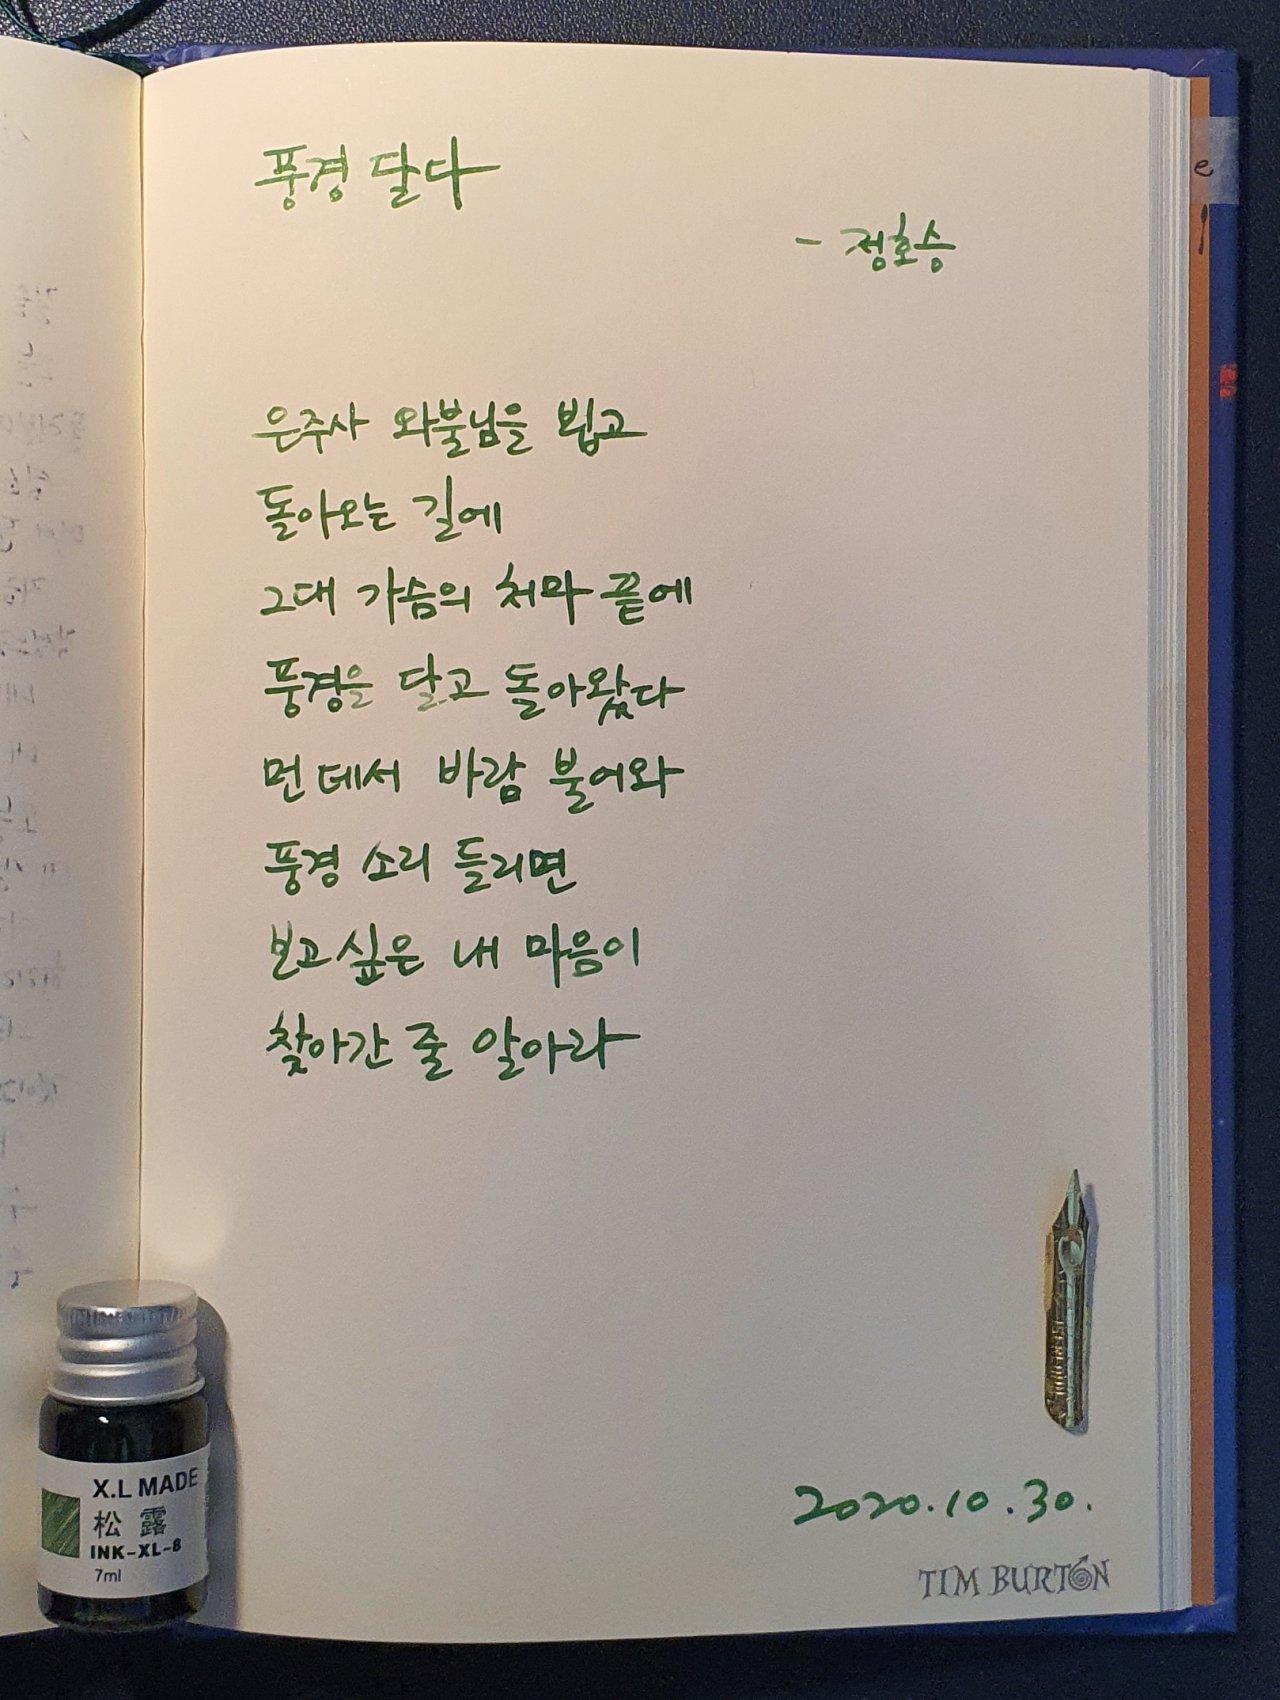 풍경 달다
- 정호승
운주사 와불님을 뵙고
돌아오는 길에
그대 가슴의 처마 끝에
풍경을 달고 돌아왔다
먼 데서 바람 불어와
풍경 소리 들리면
보고싶은 내 마음이
찾아간 줄 알아라
X.L MADE
松露
INK-XL-8
7ml
2020.10.30.
TIM BURTON